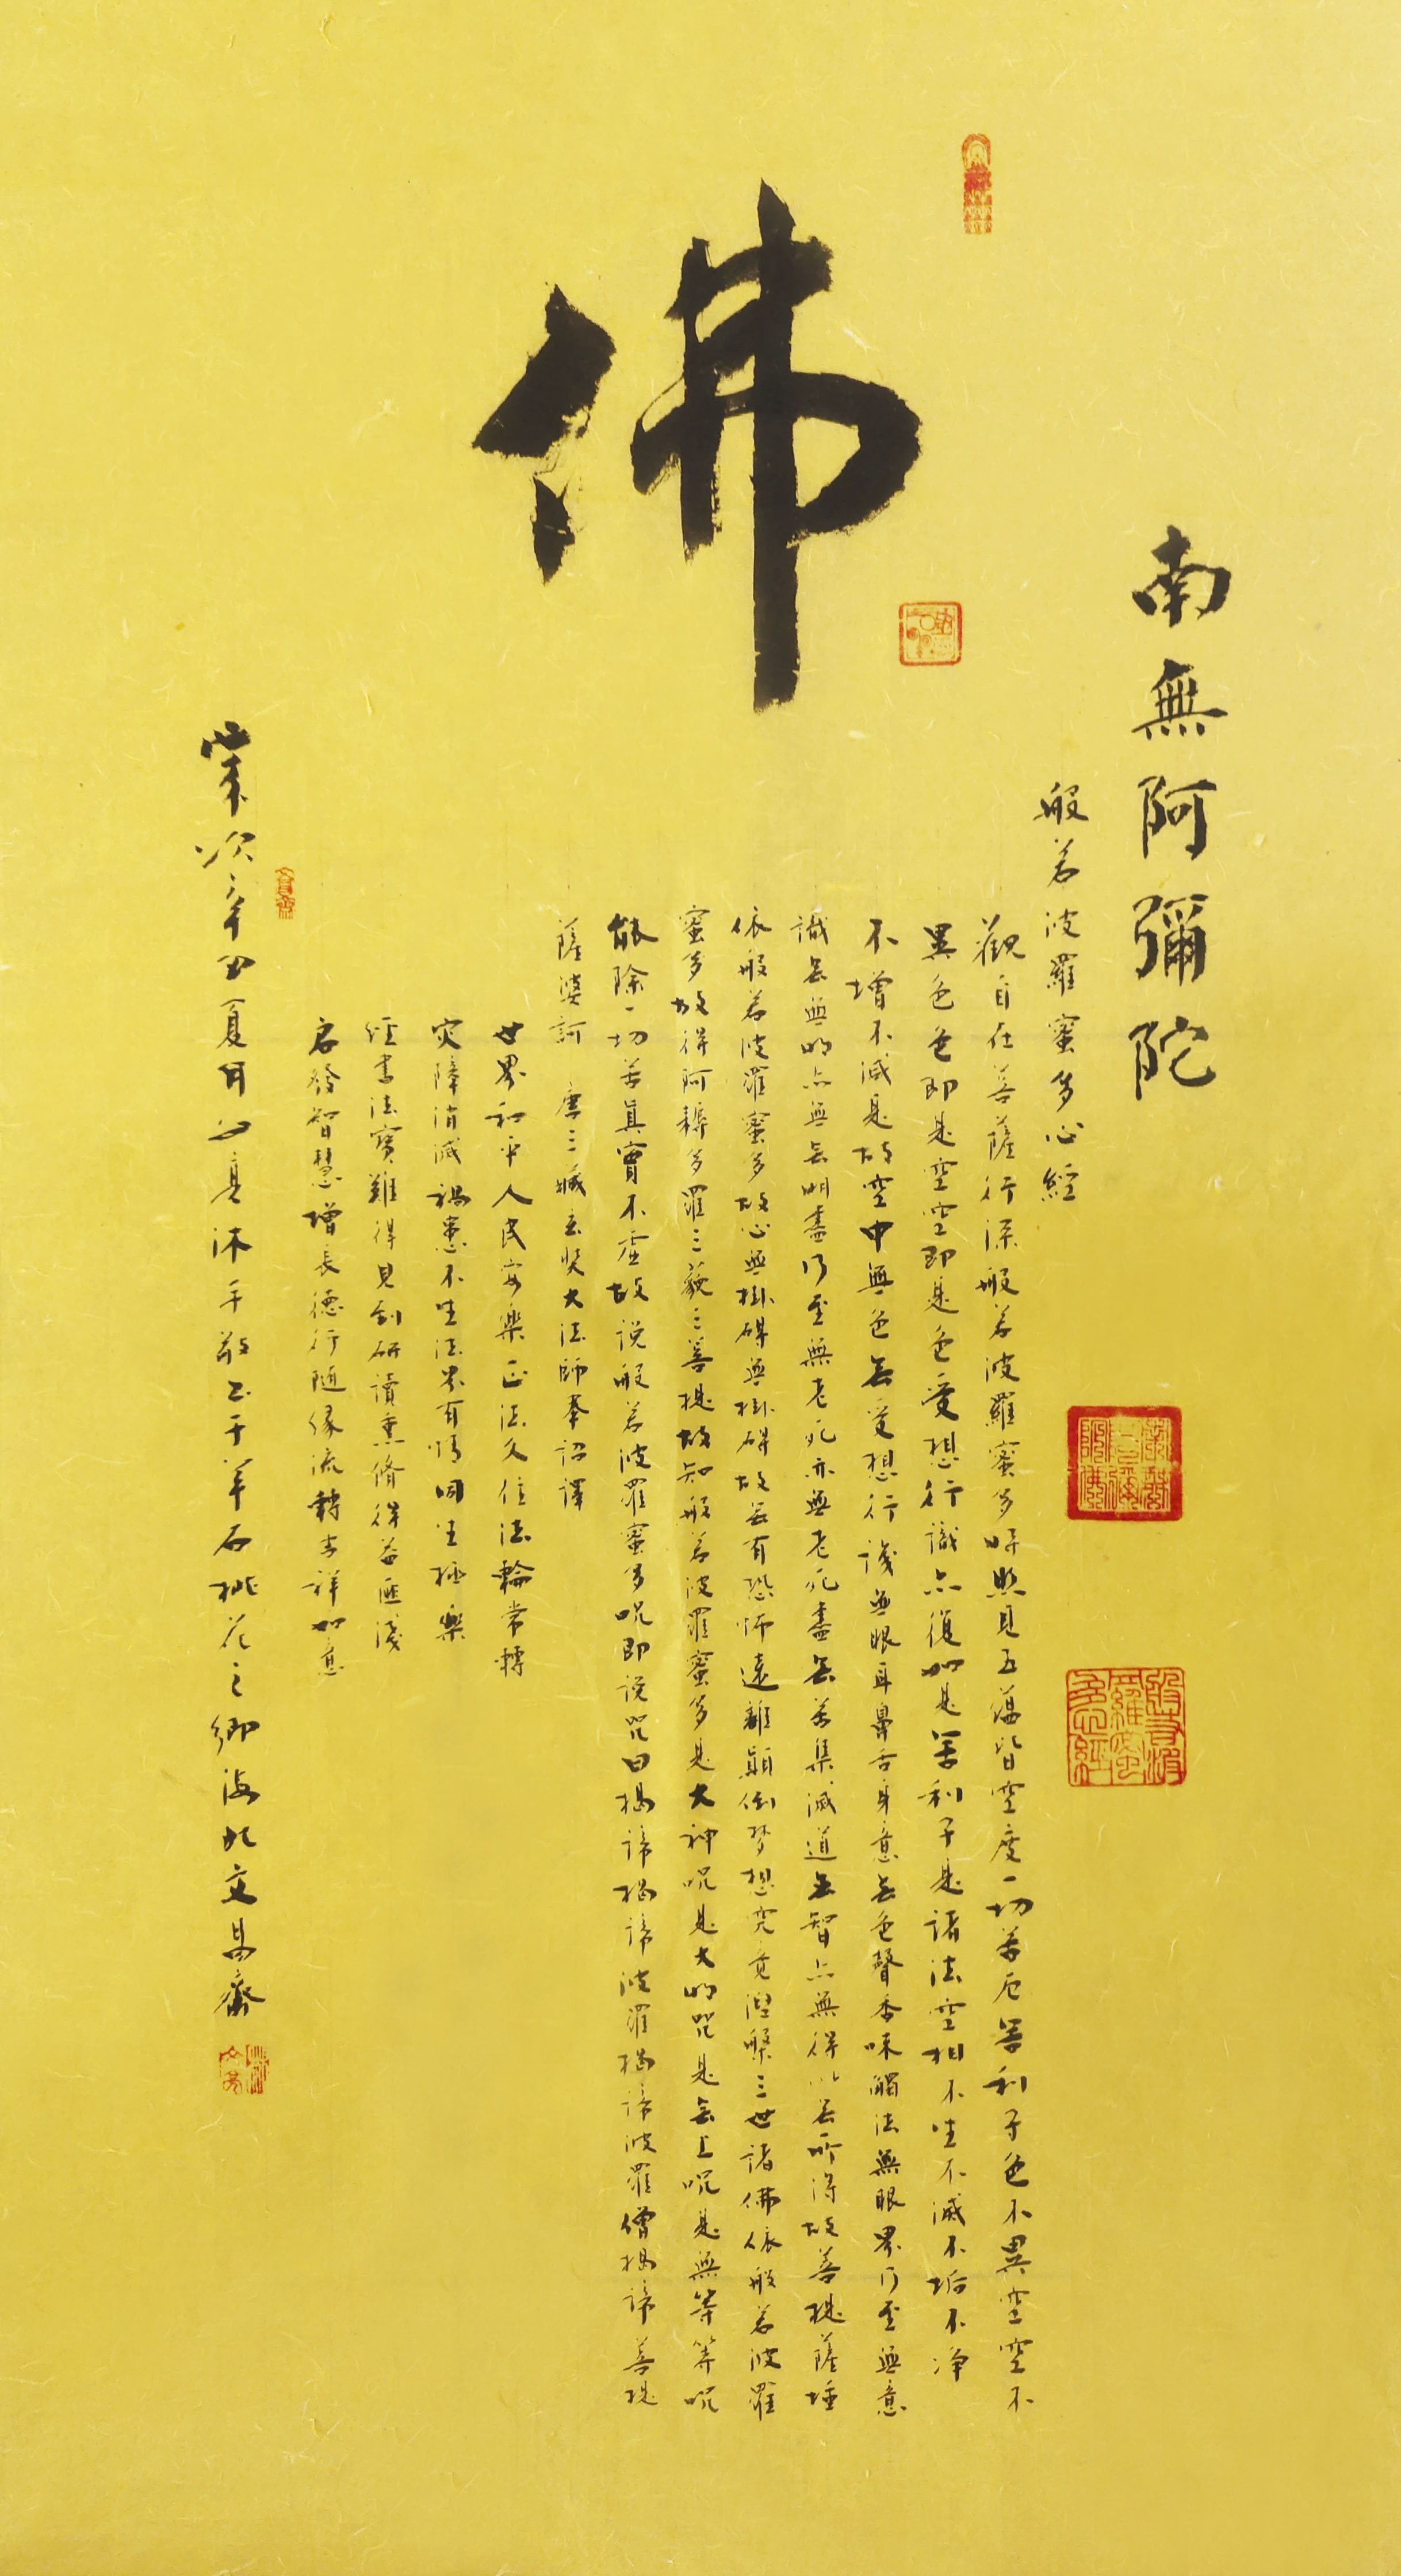 南無阿彌陀
佛
般若波羅蜜多心經
觀自在菩薩行深般若波羅蜜多時照見五蘊皆空度一切苦厄舍利子色不異空空不
異色色即是空空即是色受想行識亦復如是舍利子是諸法空相不生不滅不垢不净
不增不減是故空中無色無受想行識無眼耳鼻舌身意無色聲香味觸法無眼界乃至無意
識無無明亦無無明盡乃至無老死亦無老死盡無苦集滅道無智亦無得以無所得故菩提薩埵
依般若波羅蜜多故心無掛碍無掛碍故無有恐怖遠離顛倒梦想究竟涅槃三世諸佛依般若波羅
蜜多故得阿耨多羅三藐三菩提故知般若波羅蜜多是大神呪是大明咒是無上呪是無等等呪
能除一切苦真實不虛故說般若波羅蜜多呪即說咒曰揭諦揭諦波羅揭諦波羅僧揭諦菩提
薩婆訶 唐三藏玄奘大法師奉詔譯
世界和平人民安樂正法久住法輪常轉
灾障消滅禍患不生法界有情同生極樂
經書法寶難得見到研讀熏脩得益匪淺
启發智慧增長德行随缘流轉吉祥如意
歲次辛丑夏月 沐手敬書于羊石桃花之鄉 齋